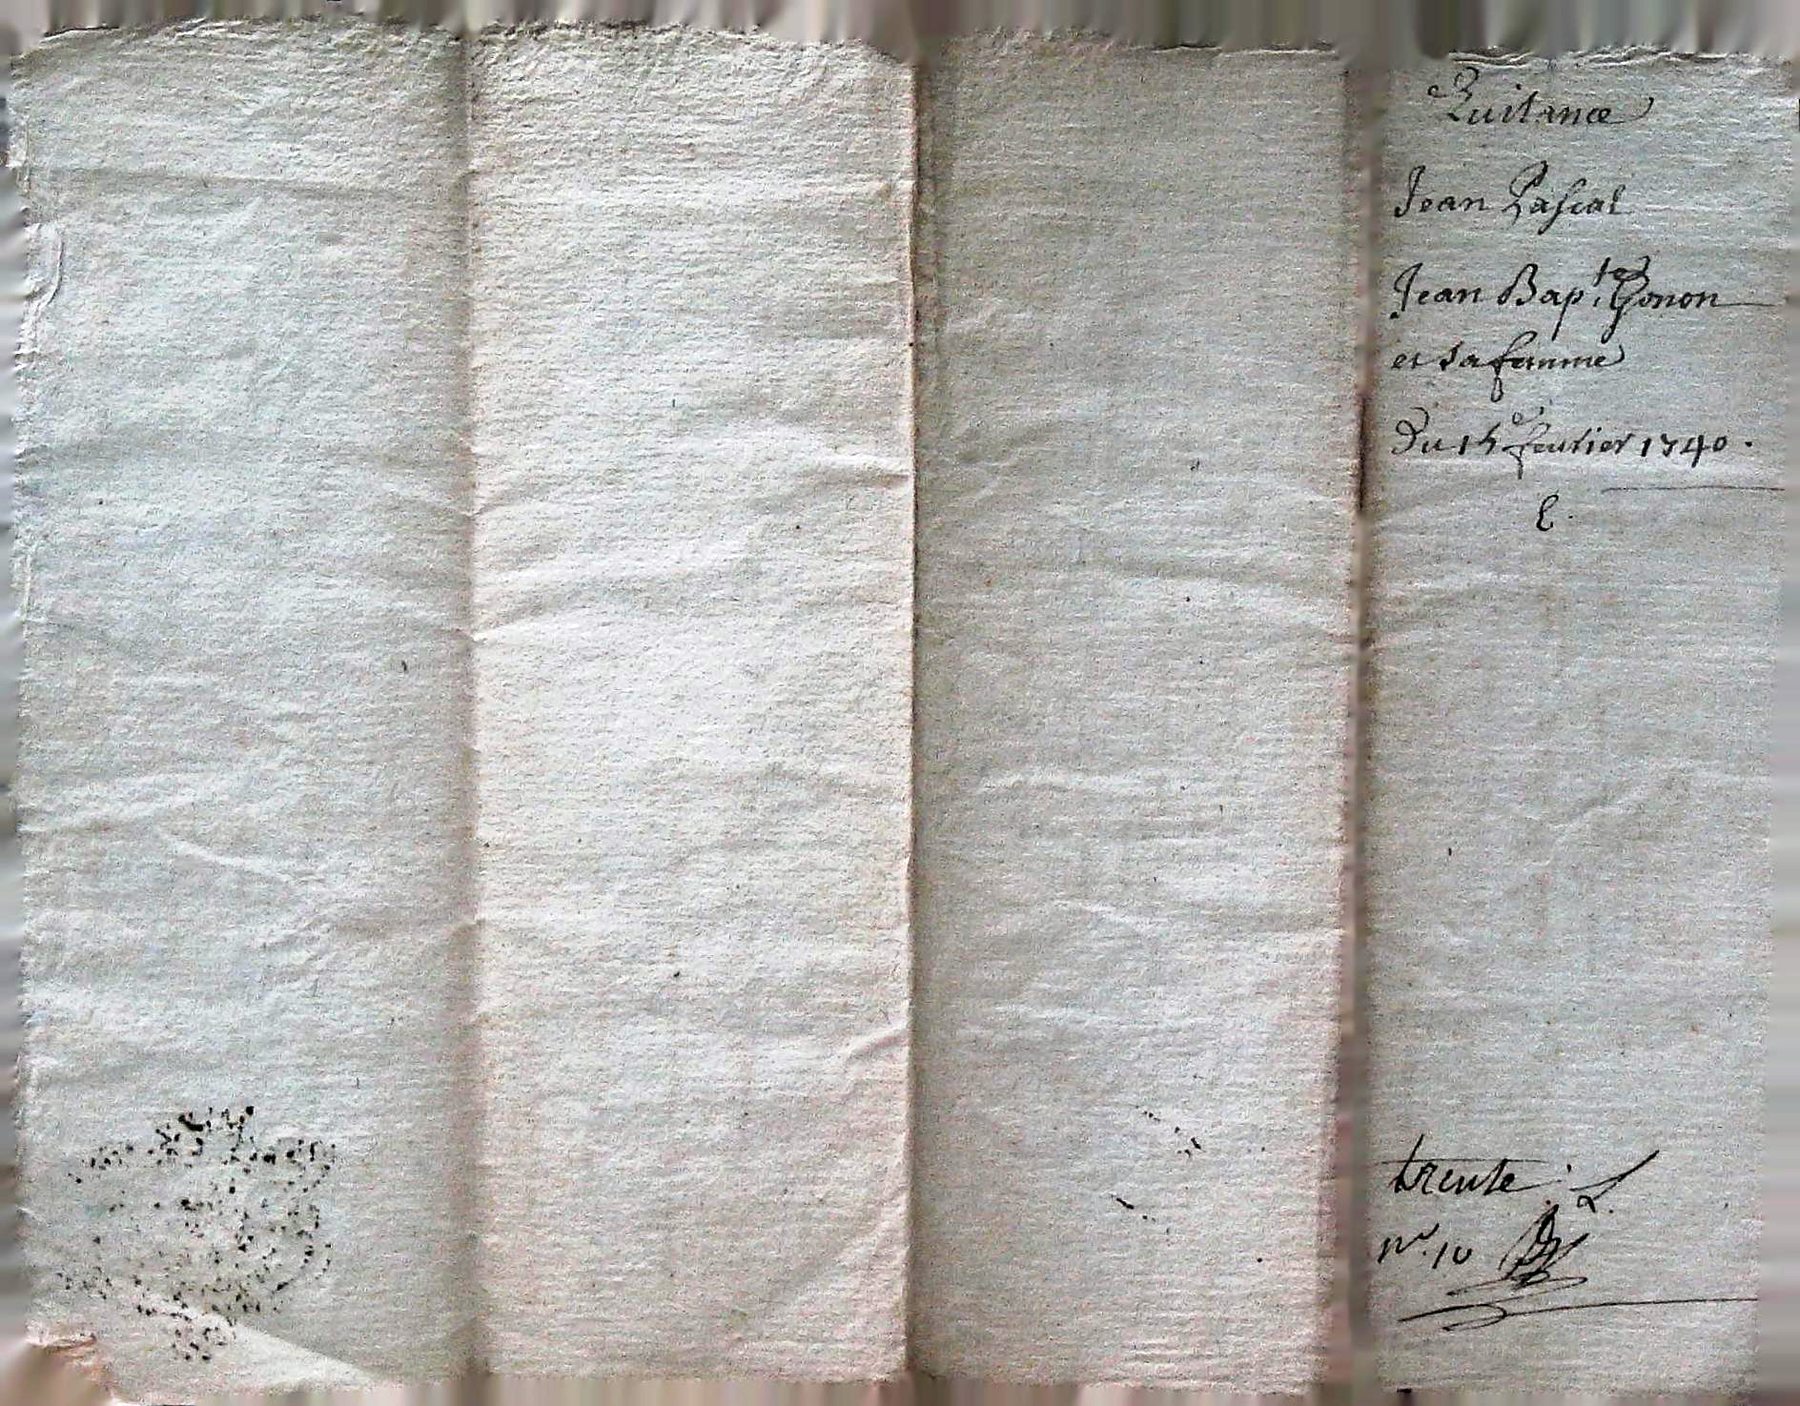 Quitance
Jean Pascal
Jean Bap.te Gonon
et sa femme
Du 15e fevrier 1740.
trente
n.o 10